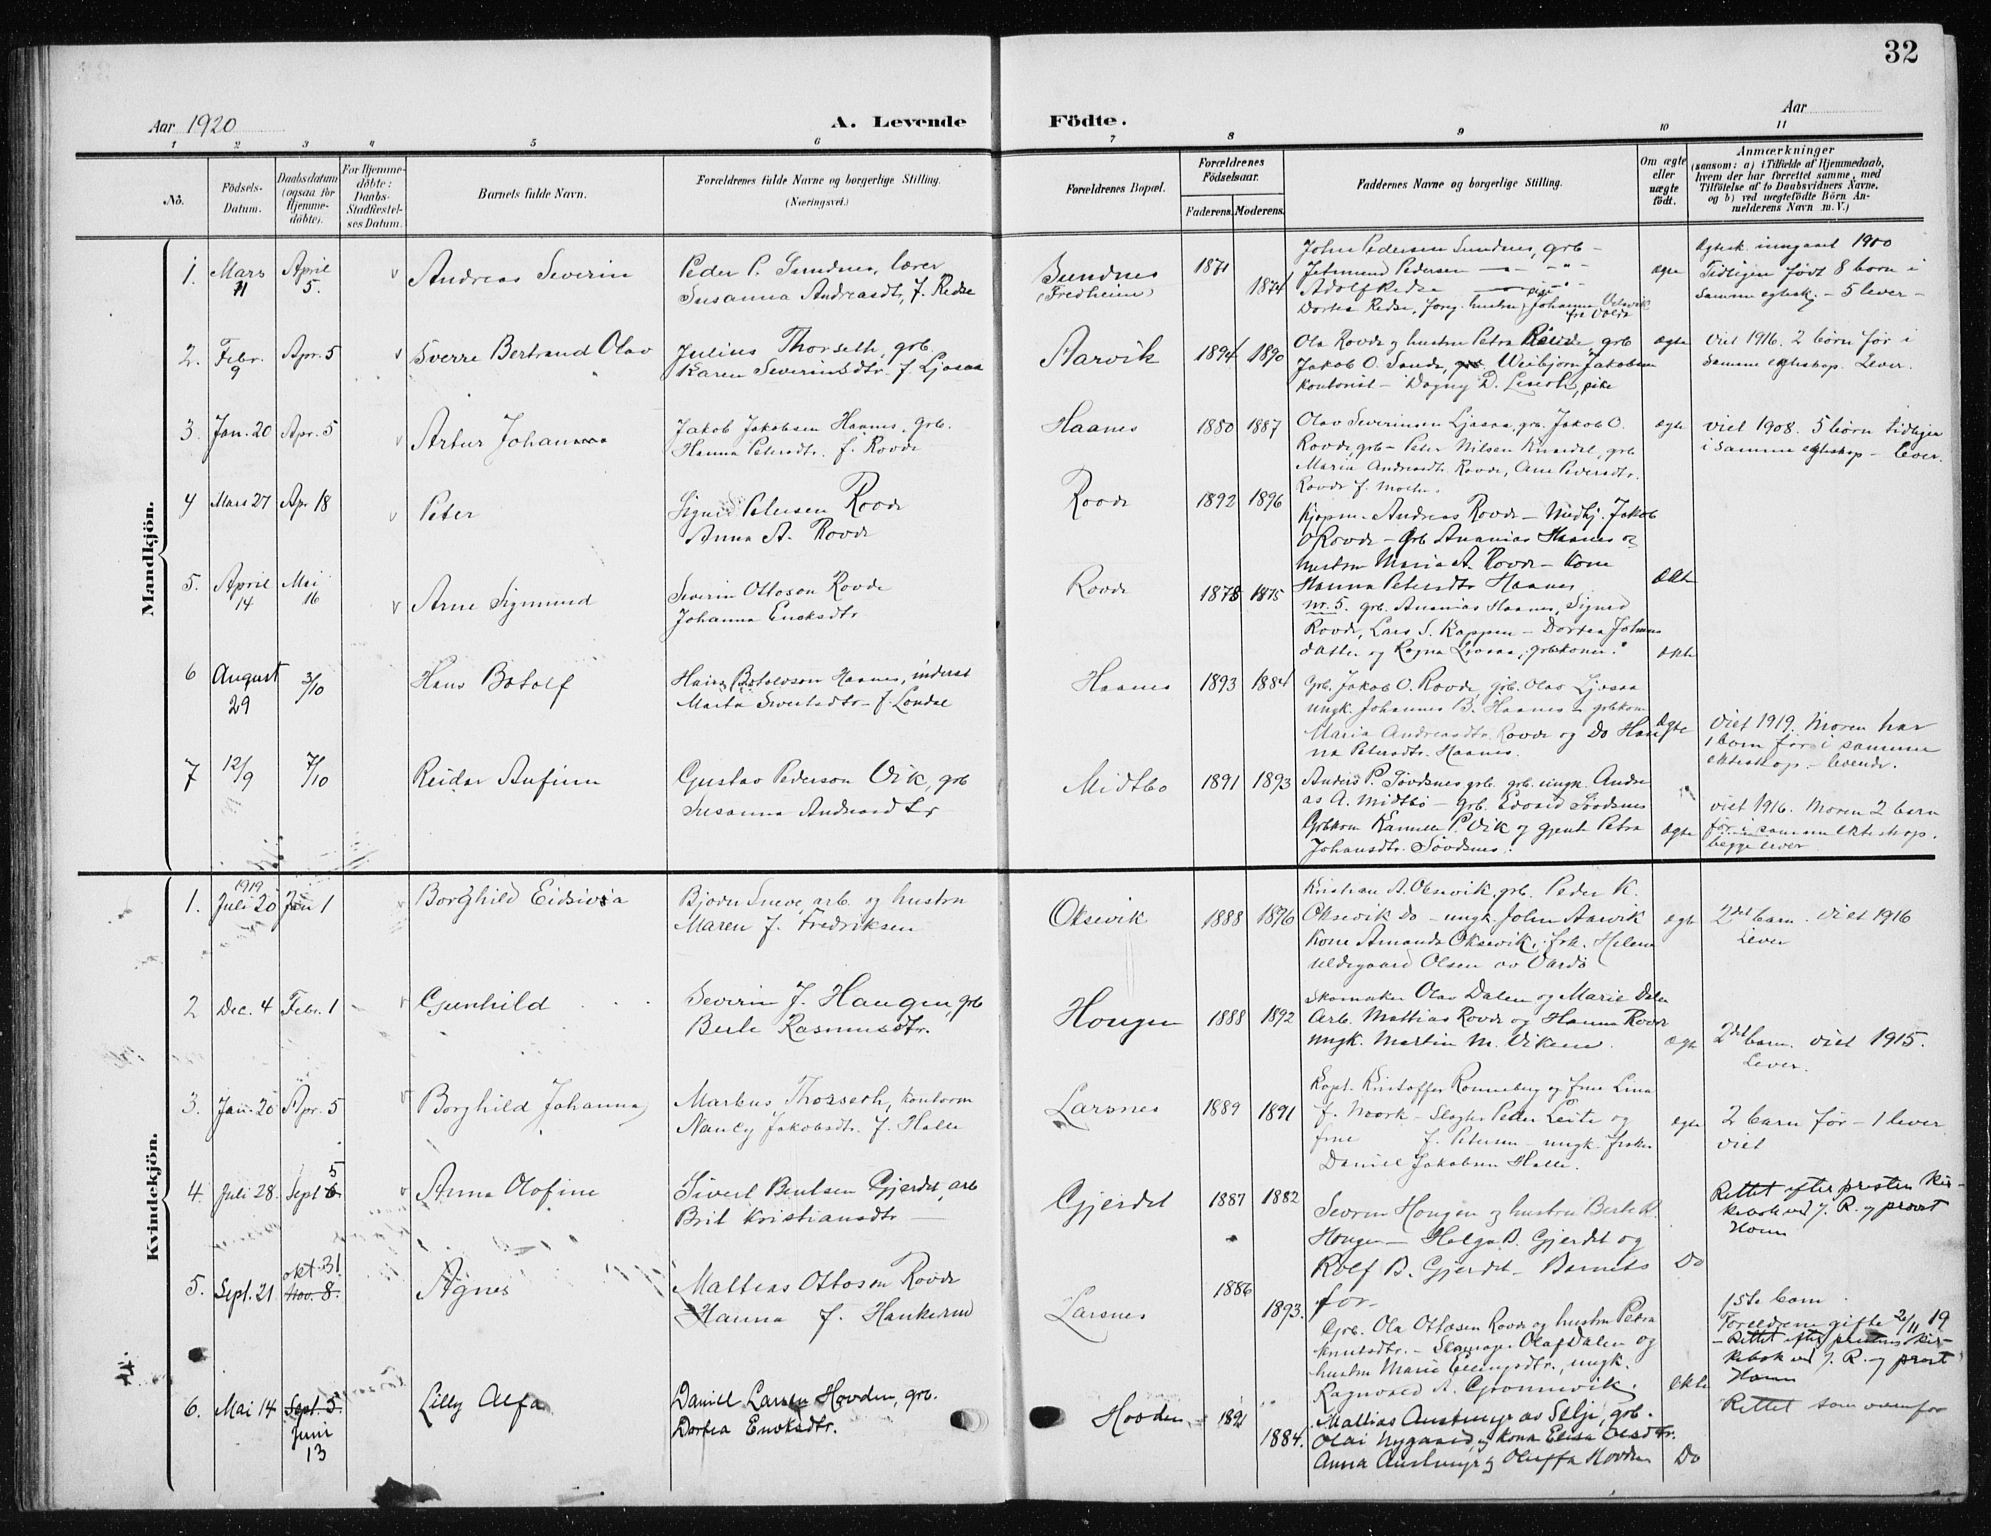 32
Aar 1920
A. Levende Födte.
Aar
1 2 3 4 5 6 7 8 9 10 11
No.
Födsels-Datum.
Daabsdatum (ogsaa for Hjemmedöbte).
For Hjemmedöbte: Daabs-Stadfæstelses Datum.
Barnets fulde Navn.
Forældrenes fulde Navne og borgerlige Stilling.
(Næringsvei.)
Forældrenes Bopæl.
Forældrenes Födselsaar.
Faderens. Moderens.
Faddernes Navne og borgerlige Stilling.
Om ægte eller uægte födt.
Anmærkninger
(saasom: a) i Tilfælde af Hjemmedaab, hvem der har forrettet samme, med Tilföielse af to Daabsvidners Navne, og b) ved uægtefödte Börn Anmelderens Navn m. V.)
Mandkjön.
1. Mars 11 April 5. Andreas Severin
Peder P. Sundnes, lærer
Susanna Andreasdtr, f. Redse
Sundnes (Fredheim) 1871 1874
John Pedersen Sundnes, grb
Jetmund Pedersen
Adolf Redse
Dortea Redse, forp. hustru Johanna
fra Volda
ægte
Ægtesk. inngaaet 1900
Tidligere født 8 born i
samme egtesk. - 5 lever -
2. Febr. 9 Apr. 5 Sverre Bertrand Olav
Julius Thorseth, grb.
Karen Severinsdtr. f. Ljosaa
Aarvik 1894 1890
Ola Rovde og hustru Petra Rovde, grb
Jakob O. Sande, Weibjørn Jakobsen
Kontorist - Dagny D. pike
ægte
Viet 1916. 2 børn før i
samme egteskap. Lever.
3. Jan. 20 Apr. 5 Artur Johan
Jakob Jakobsen Haanes, grb.
Hanna Petersdtr. f. Rovde
Haanes 1880 1887
Olav Severinsen Ljosaa, grb. Jakob O.
Rovde, grb - Peter Nilsen grb
Maria Andreasdtr Rovde, Ane Pedersdtr.
Rovde f. Moltu.
ægte
viet 1908. 5 børn tidliger
i samme egteskap - lever.
4 Mars 27 Apr 18 Peter
Signed Petersen Rovde
Anna A. Rovde
Rovde 1892 1896
Kjøpm. Andreas Rovde - Medhj. Jakob
O Rovde - Grb Ananias Haanes og
hustru Maria A. Rovde - Kone
Hanna Petersdtr Haanes
Ækt
5. April 14 Mai 16 Arne Sigmund
Severin Ottoson Rovde
Johanna Enoksdtr
Rovde 1878 1875
nr. 5. grb. Ananias Haanes, Signed
Rovde, Lars S. Koppen - Dortea Johans
datter og Ragna Ljosaa, grbkoner.
ækte
6 August 29 3/10 Hans Botolf
Hans Botolvson Haanes, inderst
Marta Sivertsdtr - f. Londal
Haanes 1893 1884
Grb. Jakob O. Rovde, grb. Olav Ljosaa
ungk. Johannes B. Haanes - grbkone
Maria Andreasdtr. Rovde og Do Han
na Petersdtr. Haanes.
ægte
Viet 1919. Moren har
1 barn før i samme
ekteskap - levende.
7 12/9 7/10 Reidar Anfinn
Gustav Pederson Vik, grb
Susanna Andreasdtr
Midtbø 1891 1893
Anders P. Søvdsnes grb. ungk. Andre
as A. Midtbø - grb. Edvard Søvdsnes
Grbkone P. Vik og gjente Petra
Johansdtr. Søvdsnes.
ægte
Viet 1916. Moren 2 barn
før i samme ekteskap.
begge lever
Kvindekjön.
1. 1919 Juli 20 Jan 1 Borghild Eidsivia
Bjørn Sneve, arb. og hustru
Maren J. Fredriksen
Oksevik 1888 1896
Kristian A. Oksevik, grb. Peder K.
Oksevik Do - ungk. John Aarvik
Kone Amanda Oksevik, frk. Helene
Uldegaard Olsen av Vardø
ægte
2det barn. Viet 1916
Lever
2 Dec. 4 Febr. 1 Gunhild
Severin J. Haugen, grb
Berte Rasmusdtr.
Hougen 1888 1892
Skomaker Olav Dalen og Marie Dalen
Arb. Mattias Rovde og Hanna Rovde
ungk. Martin M. Vikene.
ægte
2det barn. viet 1915.
Lever.
3. Jan. 20 Apr. 5 Borghild Johanna
Markus Thorseth, kontorm
Nancy Jakobsdtr. f. Halle
Larsnes 1889 1891
Kapt. Kristoffer Ronneberg og frue Lina
f. Moark - Slagter Peder Leite og
frue f. Petersen - ungk. fisker
Daniel Jakobsen Halle.
ægte
2 barn før - 1 lever
viet
4. Juli 28. Sept 5 6 Anna Olofine
Sivert Bentsen Gjerdet, arb
Brit Kristiansdtr
Gjerdet 1887 1882
Severin Hougen og hustru Berte R.
Hougen - Helga B. Gjerdet og
Rolf B. Gjerdet - Barnets
far
Do
Rettet efter presten kir-
kebok ved J. R. og prost
Honn
5. Sept. 21 okt. 31 Nov. 8. Agnes
Mattias Ottosen Rovde
Hanna J. Hankernd
Larsnes 1886 1893.
Grb. Ola Ottosen Rovde og hustru Petra
Knutsdtr. - Olaf Dalen og
hustru Marie Ellingsdtr., ungk.
Ragnvald A. Grønnevik.
ekte
1ste barn
Foreldrene gifte 2/11 19
- Rettet efter prestens kir-
kebok ved J. R. og prost
Honn
6. Mai 14 Sept. 5. Juni 13 Lilly Alfa
Daniel Larsen Hovden, grb.
Dortea Enoksdtr.
Hovden 1891 1884.
Mattias Austnyge av Selje, grb.
Olai Nygaard, og kona Elisa Olsdtr.
Anna Austnyge og Oluffa Hovden
Do
Rettet som ovenfor